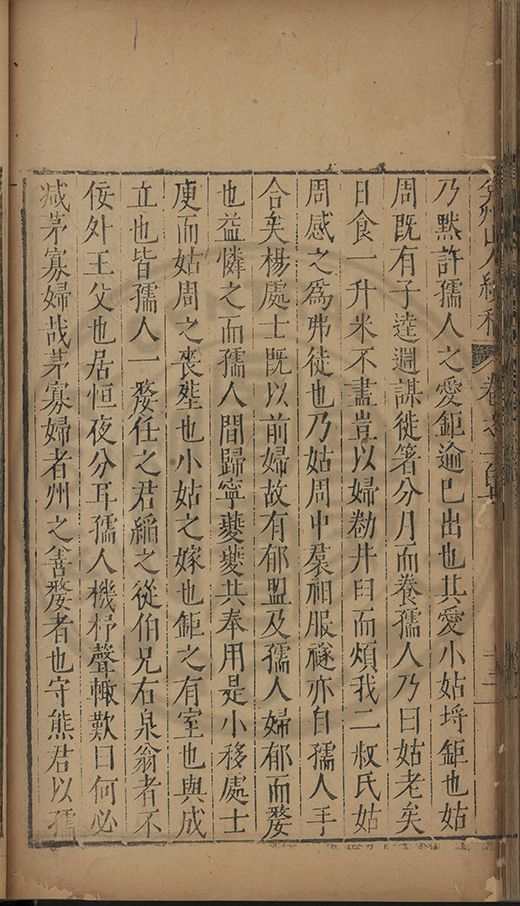 弇州山人續稿 卷之一百 十二
乃默許孺人之愛鉅逾已出也其愛小姑埒鉅也姑
周既有子逵迴謀徙箸分月而養孺人乃曰姑老矣
日食一升米不盡豈以婦勌井臼而煩我二叔氏姑
周感之為弗徒也乃姑周中裙袒服襚亦自孺人手
合矣楊處士既以前婦故有郁盟及孺人婦郁而嫠
也益憐之而孺人間歸寧夔夔共奉用是小移處士
庚而姑周之喪塟也小姑之嫁也鉅之有室也與成
立也皆孺人一嫠任之君緇之從伯兄右泉翁者不
佞外王父也居恒夜分耳孺人機杼聲輙歎曰何必
減茅寡婦哉茅寡婦者州之善嫠者也守熊君以孺